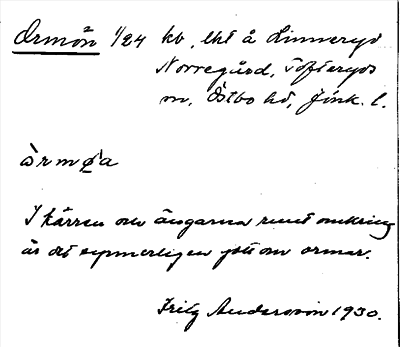 Ormön 1/24 kb, lht å Linneryd
Norregård, Tofteryds
sn, Östbo hd, Jönk. l.
òrmø̀a
I kärren och ängarna runt omkring
är det synnerligen gott om ormar.
Fritz Andersson 1930.